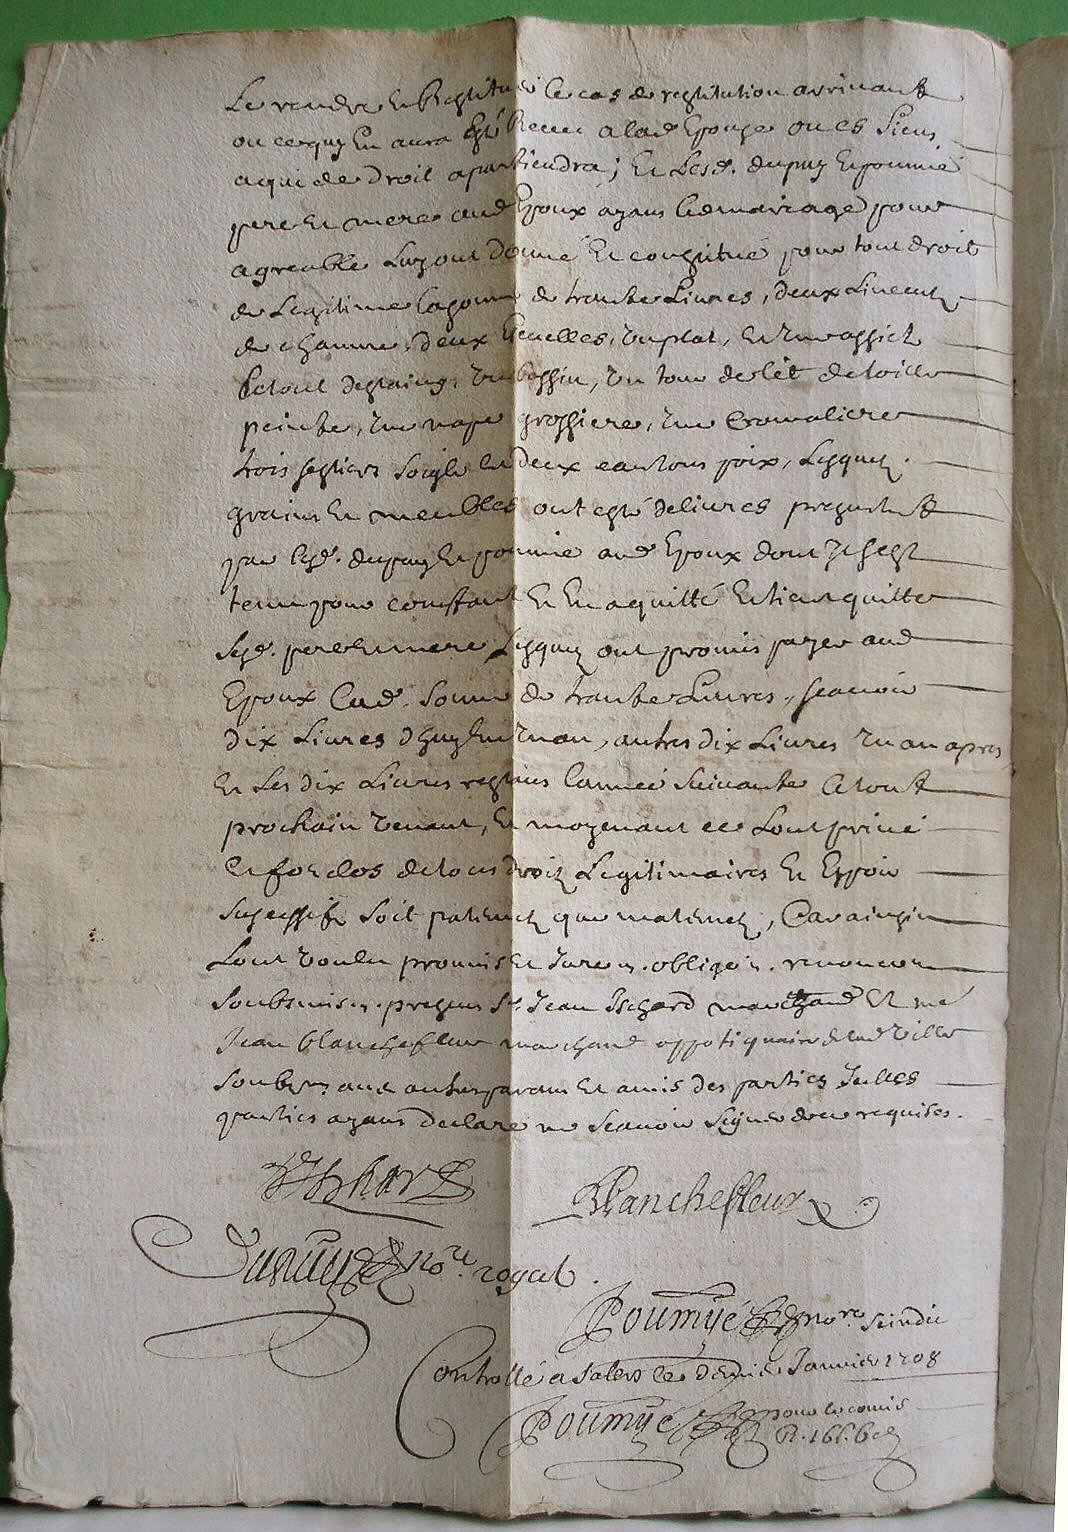 Le rendre et Restituer le cas de restitution arrivant
ou ce quy En aura Esté Receu a lad Epouze ou es siens
a qui de Droit apartiendra; Et Lesd. dupuy Et poumié
pere Et mere aud Epoux ayans led mariage pour
agreable Luy ont Donné Et constitué pour tout droit
de Legitime la somme de trante Livres, deux Linceulz
de chamvre, deux Ecuelles, un plat, et une assiete
le tout destaing, un bassin, un tour de lit de toille
peinte, une nape grossiere, une Cromaliere
trois septiers soigle et deux cartons poix, Lesquelz
grains Et meubles ont esté delivres presentemt
par lesd. dupuy Et poumie aud Epoux dont Il sest
tenu pour contant Et En a quitté Et tient quitte
sesd. pere Et mere Lesquelz ont promis payer aud
Epoux lad. somme de trante Livres, scavoir
dix Livres dhuy En un an, autres dix Livres un an apres
Et Les dix Livres restans lannée suivante le tout
prochain venant, Et moyenant ce Lont privé
et forclos de tous droitz Legitimaires Et Espoir
sucessif soit paternelz que maternelz, Car ainsin
Lont voulu promis Et Jure obligen. renoncon
soubmison. presens Sr. Jean Ischard marchand Et me
Jean blanchefleur marchand appotiquaire de lad ville
soubznes avec autres parans Et amis des parties Icelles
parties ayans Declaré ne scavoir signer de ce requises.
Ischard
Blanchefleur
Dupuy nore. royal.
Poumyé nore scindic
Controllé a salers le dernier Janvier 1708
Poumyé pour le comis